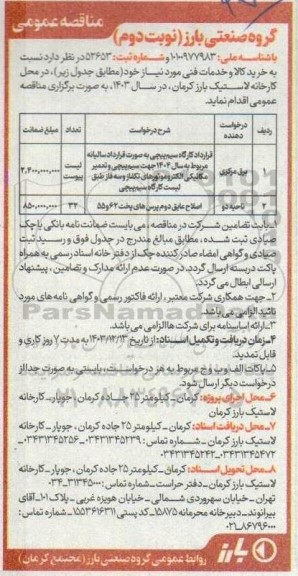 مناقصه عمومی
گروه صنعتی بارز (نوبت دوم)
باشناسه ملی: ۱۰۱۰۰۹۷۷۹۸۳ و شماره ثبت: ۵۲۶۵۳ در نظر دارد نسبت
به خرید کالا و خدمات فنی مورد نیاز خود (مطابق جدول زیر)، در محل
کارخانه لاستیک بارز کرمان، در سال ۱۴۰۳، به صورت برگزاری مناقصه
عمومی اقدام نماید.
ردیف درخواست دهنده شرح درخواست تعداد مبلغ ضمانت
۱ برق مرکزی قرارداد کارگاه سیم‌پیچی به صورت قرارداد سالیانه
مربوط به سال ۱۴۰۴ جهت سیم پیچی و تعمیر
مکانیکی الکتروموتورهای تکفاز و سه فاز طبق
لیست کارگاه سیم‌پیچی لیست پیوست ۲,۴۰۰,۰۰۰,۰۰۰
۲ ناحیه دو اصلاح عایق دوم پرس های پخت ۶۲ و ۵۵ ۳۲ ۸۵۰,۰۰۰,۰۰۰
۱ـ بابت تضامین شرکت در مناقصه، می بایست ضمانت نامه بانکی یا چک
صیادی ثبت شده، مطابق مبالغ مندرج در جدول فوق و رسید ثبت
صیادی و گواهی امضاء صادر کننده چک از دفتر خانه اسناد رسمی به همراه
پاکت دربسته ارسال گردد. در صورت عدم ارائه مدارک و تضامین، پیشنهاد
ارسالی ابطال می گردد.
۲ـ جهت همکاری شرکت معتبر، ارائه فاکتور رسمی و گواهی نامه های مورد
تائید الزامی می باشد.
۳ـ ارائه اساسنامه برای شرکت ها الزامی می باشد.
۴ـ زمان دریافت و تکمیل اسناد: از تاریخ ۱۴۰۳/۱۲/۱۳ به مدت ۷ روز کاری و
قابل تمدید.
۵ـ پاکات الف و ب و ج مربوط به هر درخواست، بایستی به صورت جدا از
درخواست دیگر ارسال شود.
۶ـ محل اجرای پروژه: کرمان ـ کیلومتر ۲۵ جاده کرمان، جوپار ـ کارخانه
لاستیک بارز کرمان
۷ـ محل دریافت اسناد: کرمان ـ کیلومتر ۲۵ جاده کرمان، جوپار ـ کارخانه
لاستیک بارز کرمان ـ شماره تماس: ۰۳۴۳۱۳۴۵۲۳۹ـ ۰۳۴۳۱۳۴۵۲۵۶ـ
۰۳۴۳۱۳۴۵۲۴۲ـ۰۳۴۳۱۳۴۵۴۷۲
۸ـ محل تحویل اسناد: کرمان ـ کیلومتر ۲۵ جاده کرمان، جوپار ـ کارخانه
لاستیک بارز کرمان ـ دفتر حراست ـ شماره تماس:
تهران ـ خیابان سهروردی شمالی ـ خیابان هویزه غربی ـ پلاک ۱۰۱ـ آقای
بیرانوند ـ دبیرخانه محرمانه ۱۵۸۷۵ ـ کد پستی ۱۵۵۳۶۱۶۳۱۱ ـ شماره تماس:
۰۲۱ـ۸۶۷۹۶۰۰۰
بارز
روابط عمومی گروه صنعتی بارز (مجتمع کرمان)